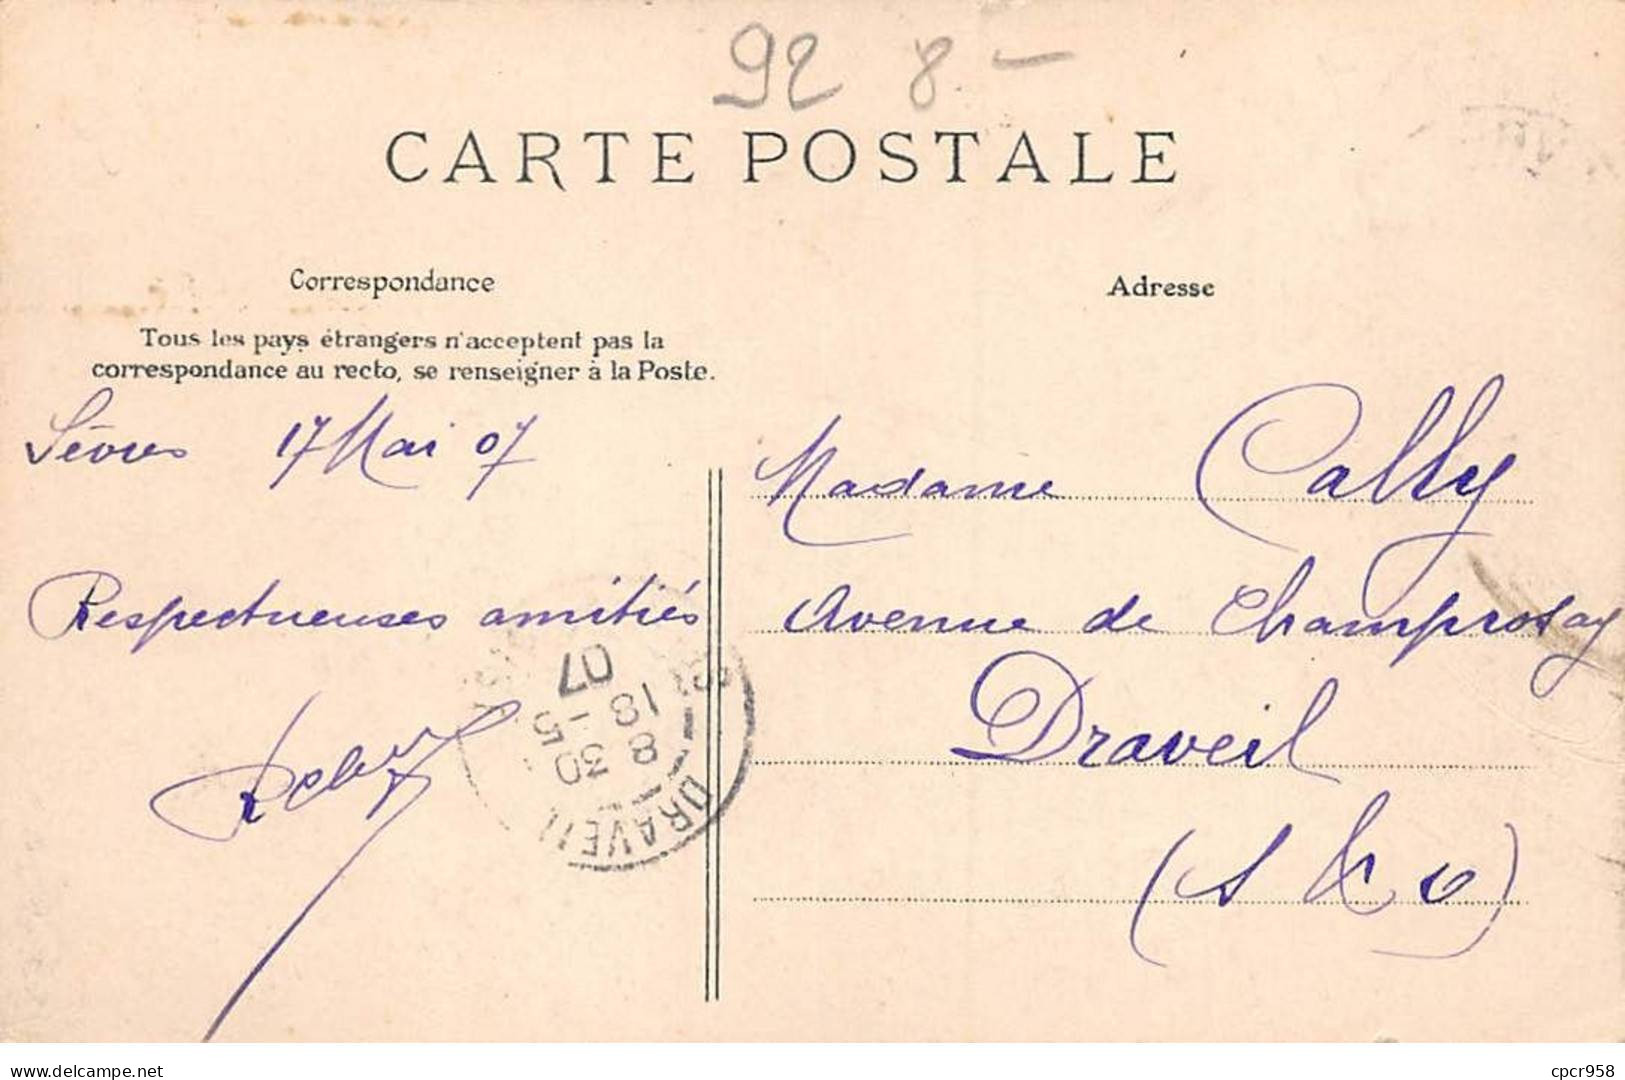 92 8.-
CARTE POSTALE
Correspondance
Adresse
Tous les pays étrangers n'acceptent pas la
correspondance au recto, se renseigner à la Poste.
Sèvres 17 Mai 07
Respectueuses amitiés
Madame Cally
Avenue de Champrosay
Draveil
(S & O)
DRAVEIL
8 30
18 -5
07
delcampe.net
cpcr958